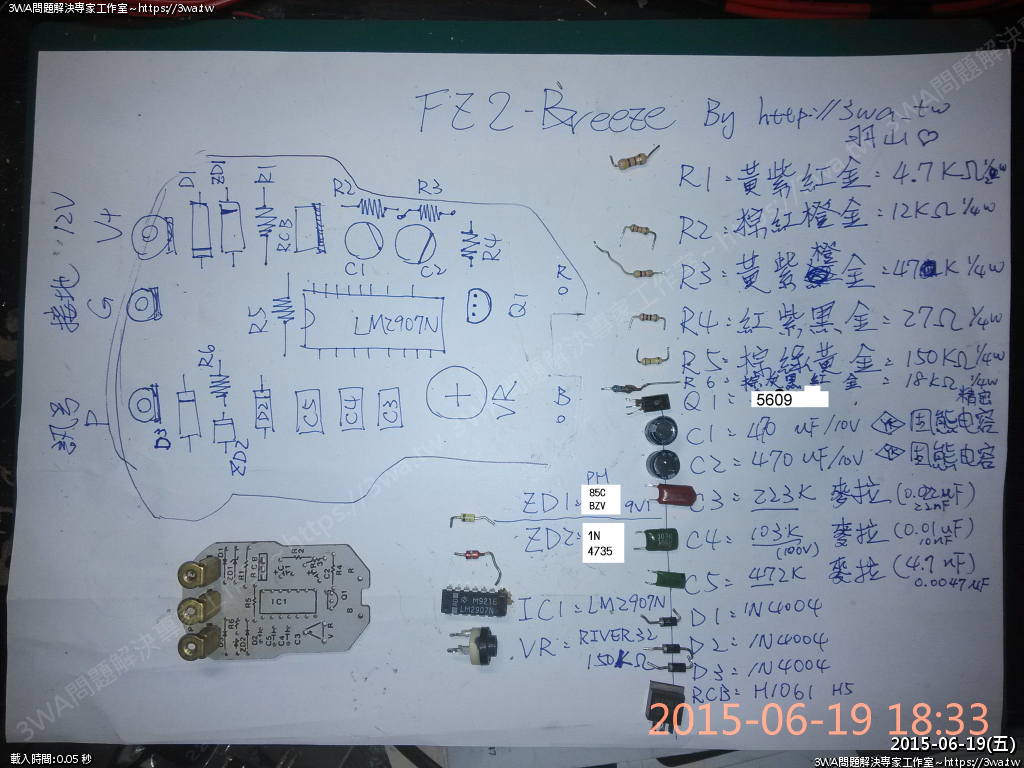 3WA問題解決專家工作室~https://3wa.tw
FZ2-Breeze By http://3wa.tw
羽山♡
R1=黃紫紅金=4.7KΩ 1/2w
R2=棕紅橙金=12KΩ 1/4w
R3=黃紫橙金=47K 1/4w
R4=紅紫黑金=27Ω 1/4w
R5=棕綠黃金=150KΩ 1/4w
R6=棕灰黑紅金=18KΩ 1/4w
精密
Q1= 5609
C1=470 uF/10V 固態电容
C2=470 uF/10V 固態电容
C3=223K 麥拉(0.022uF)
22nF
C4=103K 麥拉(0.01uF)
(100V) 10nF
C5=472K 麥拉(4.7nF)
0.0047uF
D1=1N4004
D2=1N4004
D3=1N4004
RCB=H1061 H5
PH
ZD1= 85C
BZV 9V1
ZD2= 1N
4735
IC1=LM2907N
VR=RIVER32
150KΩ
訊号 P 接地 G V+ :12V
D1 ZD1 R1 RCB R2 R3
C1 C2 R4
R5 LM2907N Q1
R
B
R6 D3 ZD2 D2 C5 C4 C3 VR
D1 ZD1 R1 RCB R2
C1 C2 R4
R5 IC1 Q1
R
B
R6 ZD2 D2 C5 C4 C3 VR
M921E
LM2907N
2015-06-19 18:33
2015-06-19(五)
載入時間:0.05 秒
3WA問題解決專家工作室~https://3wa.tw